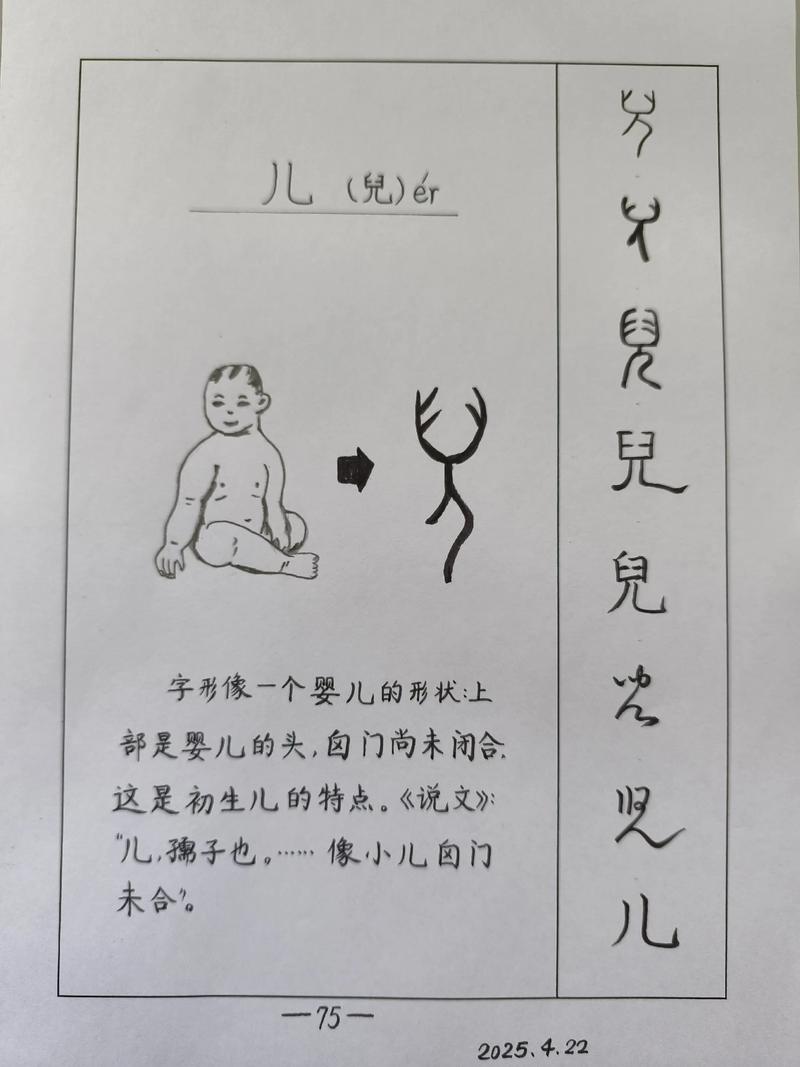 儿 (兒) ér
字形像一个婴儿的形状:上
部是婴儿的头,囟门尚未闭合,
这是初生儿的特点。《说文》:
“儿,孺子也。……像小儿囟门
未合”。
兒
兒
儿
—75—
2025.4.22